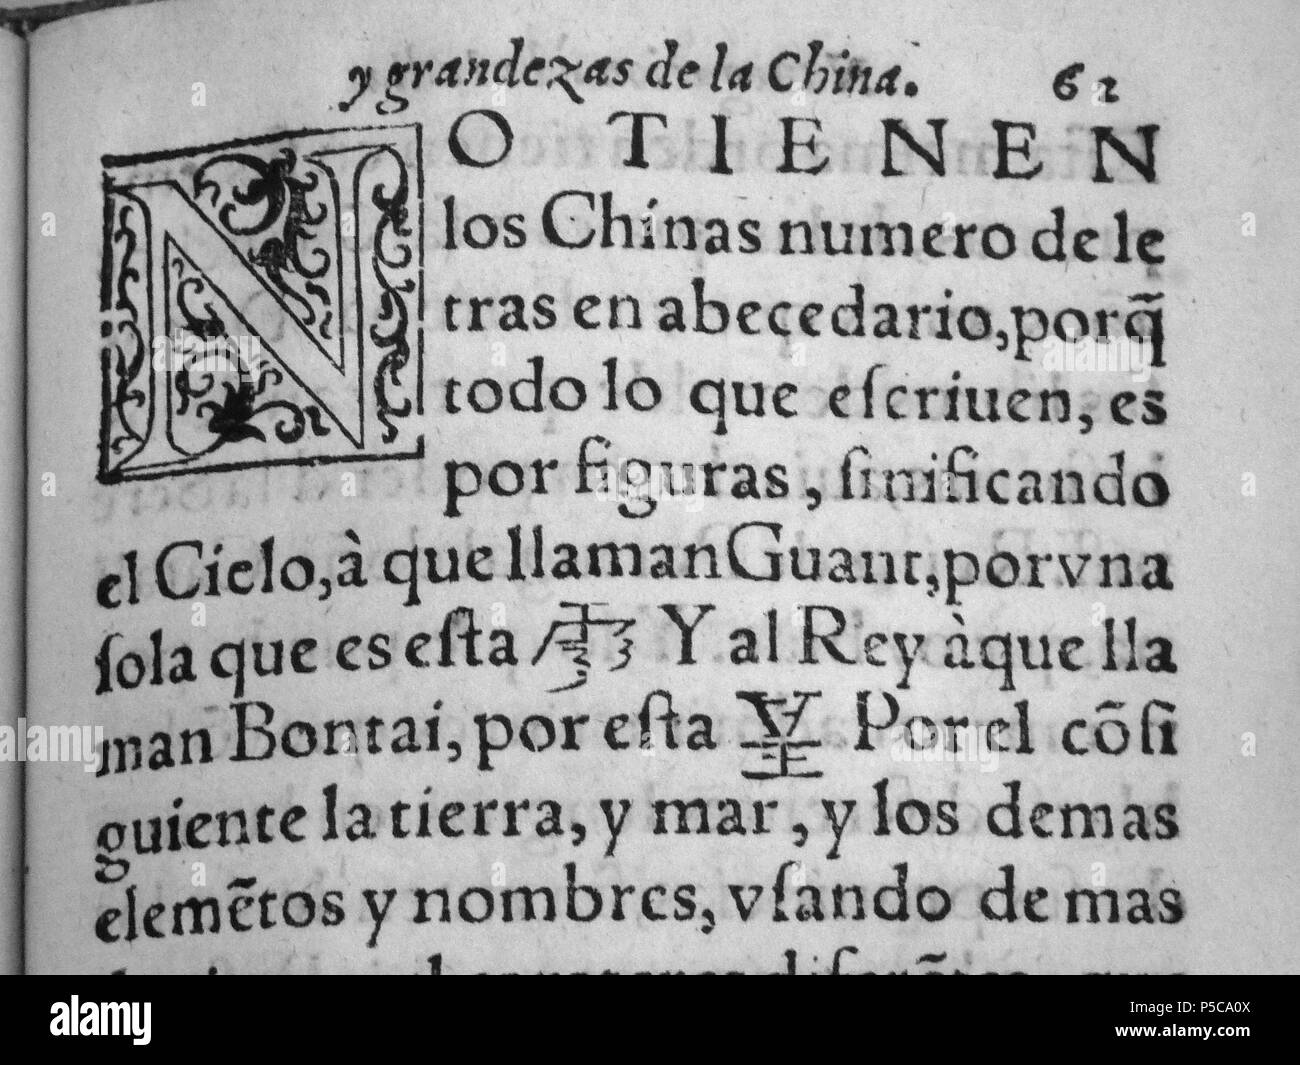 y grandezas de la China. 62
NO TIENEN
los Chinas numero de le
tras en abecedario, porq̃
todo lo que eſcriuen, es
por figuras, ſinificando
el Cielo, à que llaman Guant, por vna
ſola que es eſta Y al Rey àque lla
man Bontai, por eſta Por el cõſi
guiente la tierra, y mar, y los demas
elemẽtos y nombres, vſando de mas
alamy stock photo
alamy
Image ID: P5CA0X
www.alamy.com